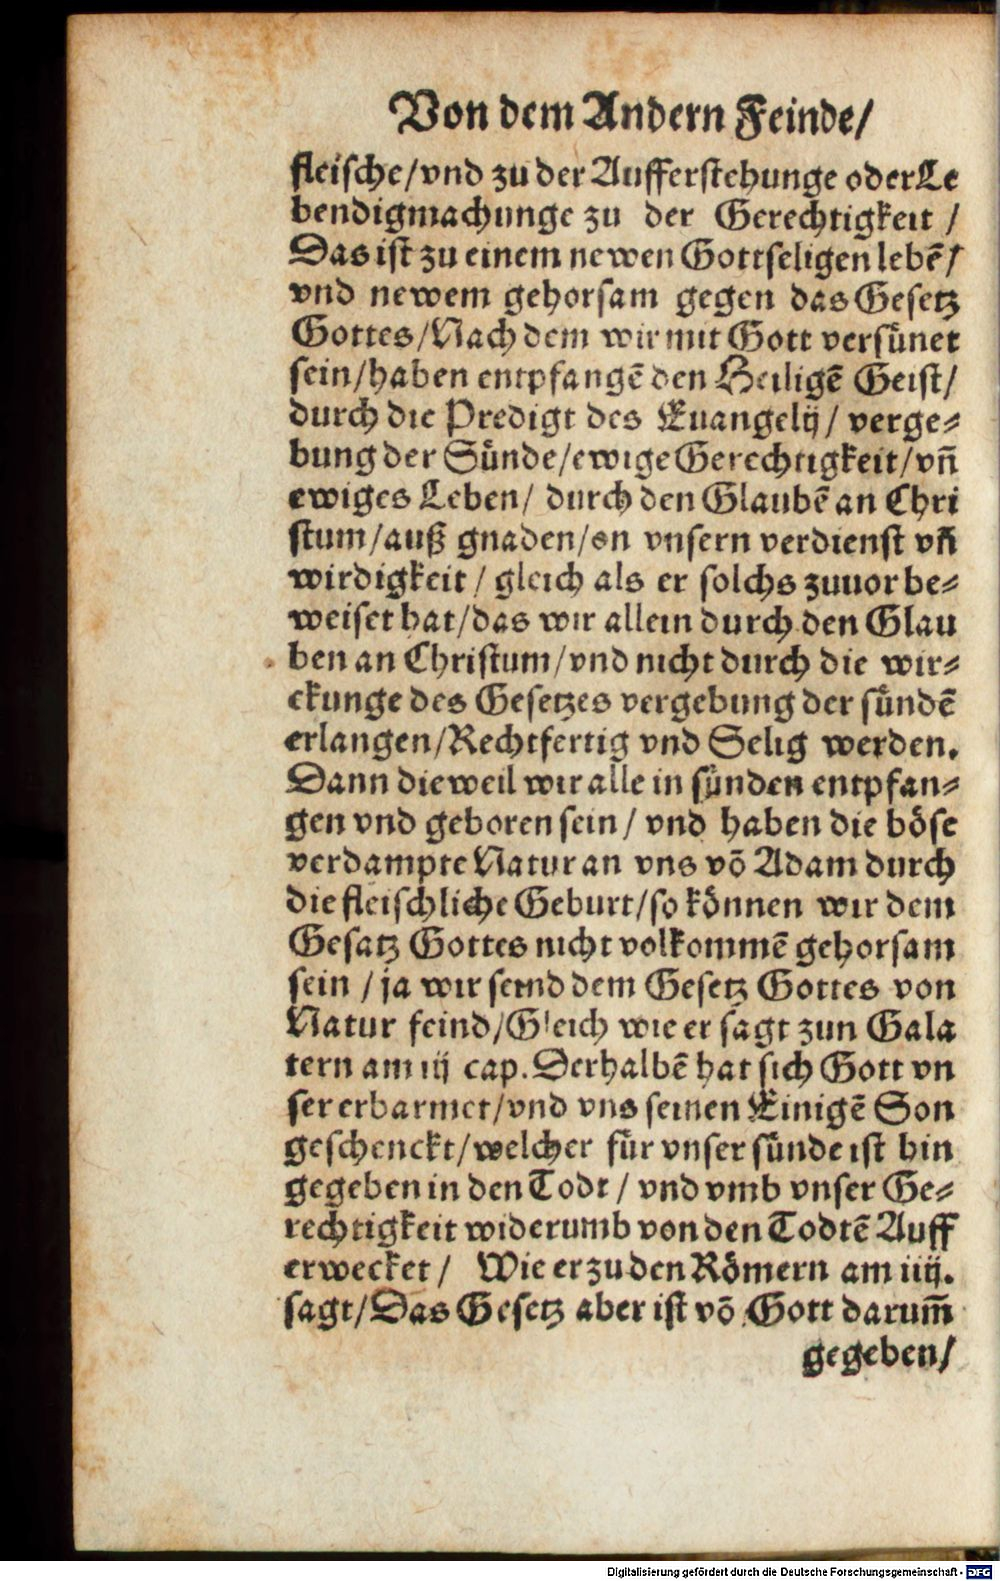 Von dem Andern Feinde/
fleische/vnd zu der Aufferstehunge oder Le
bendigmachunge zu der Gerechtigkeit /
Das ist zu einem newen Gottseligen lebē/
vnd newem gehorsam gegen das Gesetz
Gottes/Nach dem wir mit Gott versünet
sein/haben entpfangē den Heiligē Geist/
durch die Predigt des Euangelij/ verge⸗
bung der Sünde/ewige Gerechtigkeit/vn̄
ewiges Leben/ durch den Glaubē an Chri
stum/auß gnaden/on vnsern verdienst vn̄
wirdigkeit / gleich als er solchs zuuor be⸗
weiset hat/das wir allein durch den Glau
ben an Christum/vnd nicht durch die wir⸗
ckunge des Gesetzes vergebung der sündē
erlangen/Rechtfertig vnd Selig werden.
Dann dieweil wir alle in sünden entpfan⸗
gen vnd geboren sein/ vnd haben die böse
verdampte Natur an vns vō Adam durch
die fleischliche Geburt/so können wir dem
Gesatz Gottes nicht volkommē gehorsam
sein / ja wir seind dem Gesetz Gottes von
Natur feind/Gleich wie er sagt zun Gala
tern am iij cap. Derhalbē hat sich Gott vn
ser erbarmet/vnd vns seinen Einigē Son
geschenckt/welcher für vnser sünde ist hin
gegeben in den Todt / vnd vmb vnser Ge⸗
rechtigkeit widerumb von den Todtē Auff
erwecket/ Wie er zu den Römern am iiij.
sagt/Das Gesetz aber ist vō Gott darum̄
gegeben/
Digitalisierung gefördert durch die Deutsche Forschungsgemeinschaft - DFG